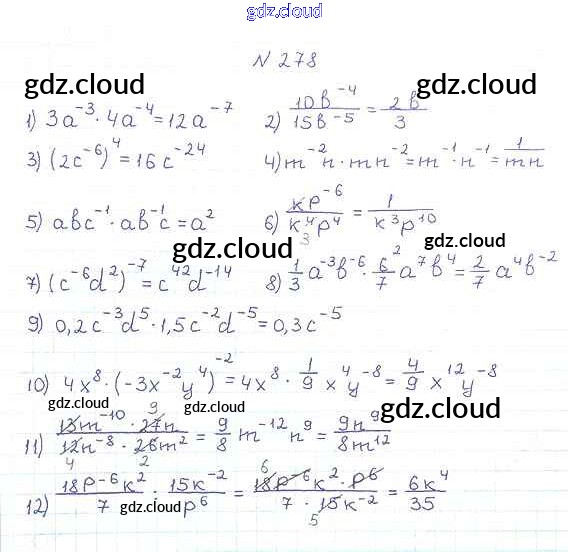 gdz.cloud
N 278
gdz.cloud gdz.cloud
1) 3a⁻³ · 4a⁻⁴ = 12a⁻⁷ 2) 10b⁻⁴/15b⁻⁵ = 2b/3
3) (2c⁻⁶)⁴ = 16c⁻²⁴ 4) m⁻²n · mn⁻² = m⁻¹ · n⁻¹ = 1/mn
5) abc⁻¹ · ab⁻¹c = a² 6) kp⁻⁶/k⁴p⁴ = 1/k³p¹⁰
3
gdz.cloud gdz.cloud
7) (c⁻⁶d²)⁻⁷ = c⁴²d⁻¹⁴ 8) 1/3 a⁻³b⁻⁶ · 6²/7 a⁷b⁴ = 2/7 a⁴b⁻²
9) 0,2c⁻³d⁵ · 1,5c⁻²d⁻⁵ = 0,3c⁻⁵
10) 4x⁸ · (-3x⁻²y⁴)⁻² = 4x⁸ · 1/9 x⁴y⁻⁸ = 4/9 x¹²y⁻⁸
gdz.cloud gdz.cloud gdz.cloud
9
11) 13m⁻¹⁰ · 27n/12n⁻⁸ · 26m² = 9/8 m⁻¹²n⁹ = 9n⁹/8m¹²
4 2
6
12) 18p⁻⁶k²/7 : 15k⁻²/p⁶ = 18p⁻⁶k² · p⁶/7 · 15k⁻² = 6k⁴/35
5
gdz.cloud gdz.cloud